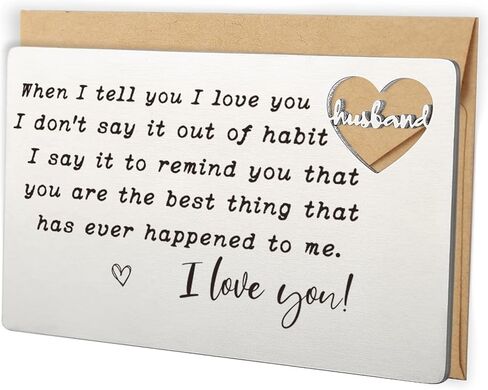 When I tell you I love you
I don't say it out of habit
husband
I say it to remind you that
you are the best thing that
has ever happened to me.
I love you!